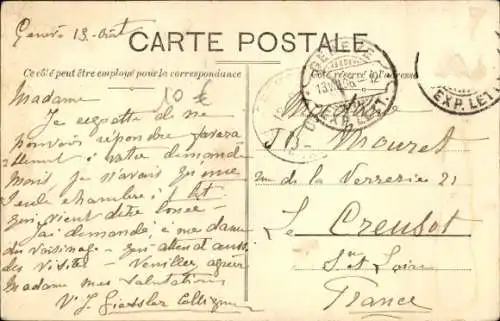 Genève 13 Août
CARTE POSTALE
Ce côté peut être employé pour la correspondance
Côté réservé à l'adresse
10 €
GENÈVE
EXP. LETT.
EXP. LET
Madame
Je regrette de ne
pouvoir répondre favora
à votre demande
Mais je n'avais qu'une
seule chambre à lit
qui vient d'être louée
J'ai demandé à une dame
du voisinage qui attend aussi
des visites Veuillez agréer
Madame mes Salutations
Mouret
rue de la Verrerie 21
Le Creusot
Sne et Loire
France